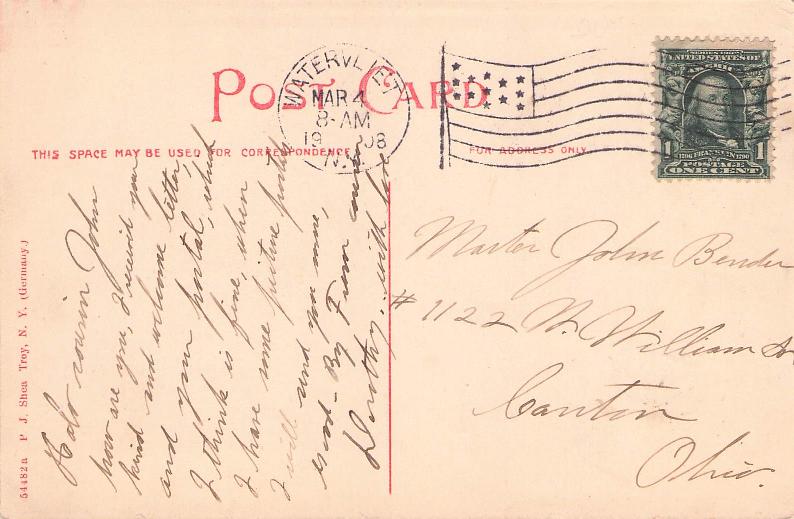 POST CARD
WATERVLIET
MAR 4
8-AM
1908
N.Y.
SERIES 1902
1 FRANKLIN 1
POSTAGE
ONE CENT
THIS SPACE MAY BE USED FOR CORRESPONDENCE
FOR ADDRESS ONLY
Helo cousin John
how are you, I received your
kind and welcome letter,
and your postal, which
I think is fine, when
I have some picture postals
I will send you some,
Good-By From cousin
Dorothy, with love
Master John Bender
# 1122 N. William
Canton
Ohio.
54482a P. J. Shea Troy, N. Y. (Germany.)